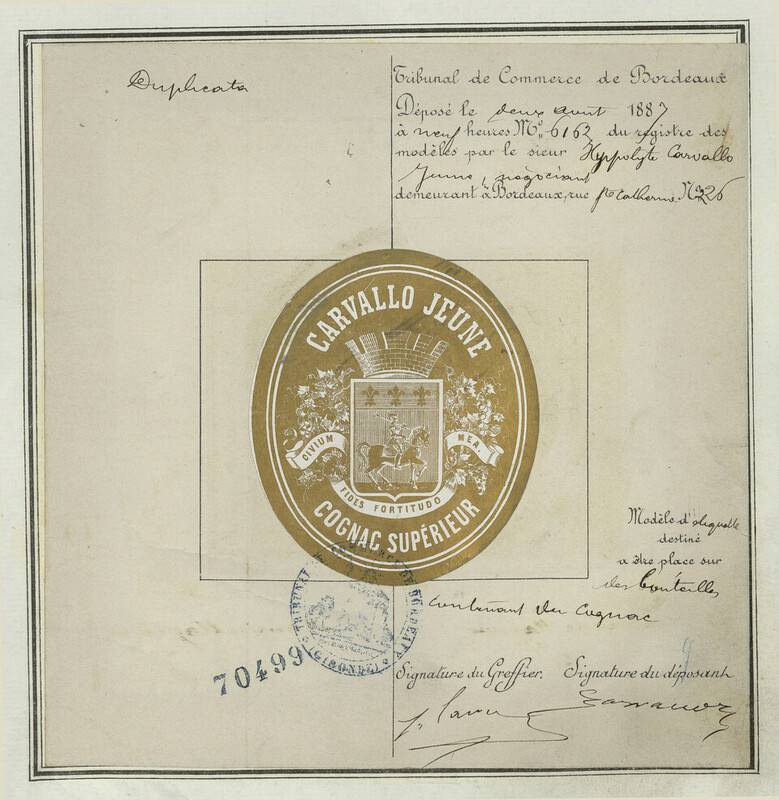 Duplicata
Tribunal de Commerce de Bordeaux
Déposé le deux août 1887
à neuf heures M. No 6162 du registre des
modèles par le sieur Hyppolyte Carvallo
Jeune, négociant
demeurant à Bordeaux, rue Ste Catherine No 226
CARVALLO JEUNE
CIVIUM
MEA.
FIDES FORTITUDO
COGNAC SUPÉRIEUR
Modèle d'étiquette
destiné
a être place sur
des bouteilles
contenant du Cognac
TRIBUNAL DE COMMERCE DE BORDEAUX
(GIRONDE)
70499
Signature du Greffier. Signature du déposant